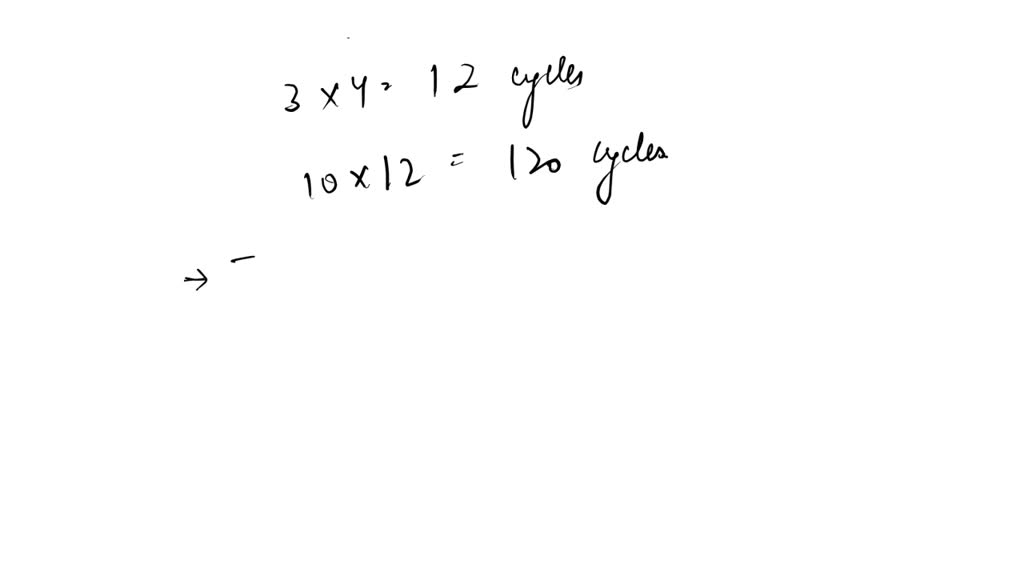 3 x 4 = 12 cycles
10 x 12 = 120 cycles
→ –